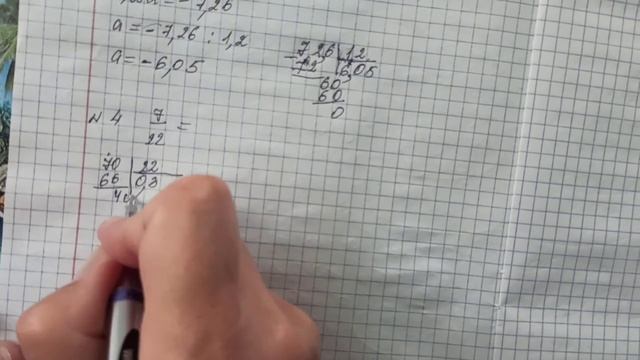 = - 7,26
a = - 7,26 : 1,2
a = - 6,05
- 7,26 | 1,2
72 | 6,05
60
60
0
№ 4 7/22 =
70 | 22
66 | 0,3
40